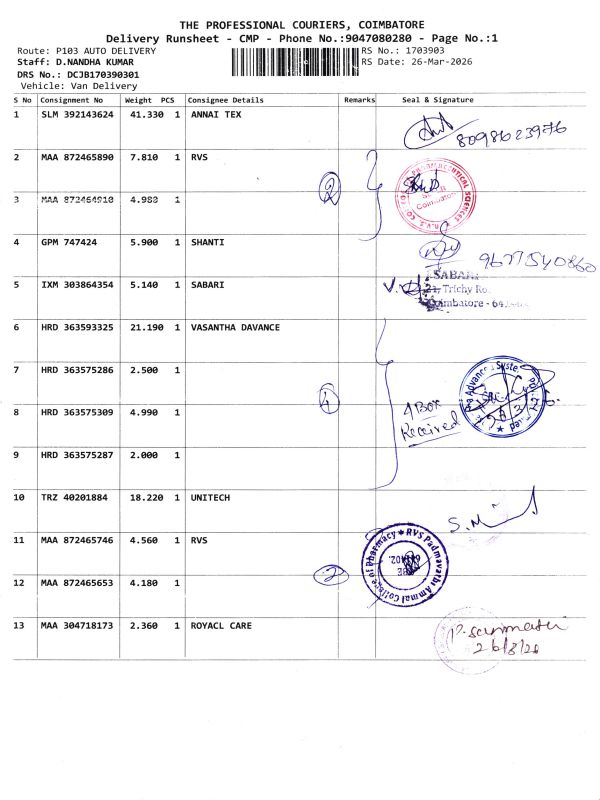 THE PROFESSIONAL COURIERS, COIMBATORE
Delivery Runsheet - CMP - Phone No.:9047080280 - Page No.:1
Route: P103 AUTO DELIVERY
RS No.: 1703903
Staff: D.NANDHA KUMAR
RS Date: 26-Mar-2026
DRS No.: DCJB170390301
Vehicle: Van Delivery
S No Consignment No Weight PCS Consignee Details Remarks Seal & Signature
1 SLM 392143624 41.330 1 ANNAI TEX
8098623976
2 MAA 872465890 7.810 1 RVS
2
3 MAA 872464910 4.982 1
Coimbatore
4 GPM 747424 5.900 1 SHANTI
9677540860
5 IXM 303864354 5.140 1 SABARI
SABARI
21, Trichy Ro
Coimbatore - 641
6 HRD 363593325 21.190 1 VASANTHA DAVANCE
7 HRD 363575286 2.500 1
4
8 HRD 363575309 4.990 1
4 Box
Received
9 HRD 363575287 2.000 1
10 TRZ 40201884 18.220 1 UNITECH
11 MAA 872465746 4.560 1 RVS
RVS Padmavathi Ammal College of Pharmacy
2
12 MAA 872465653 4.180 1
13 MAA 304718173 2.360 1 ROYACL CARE